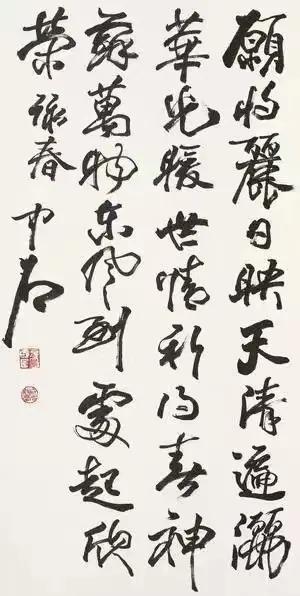 願将麗日映天清遍灑
華光暖世情祈得春神
蘇萬物東風到處起欣
榮 詠春 中石